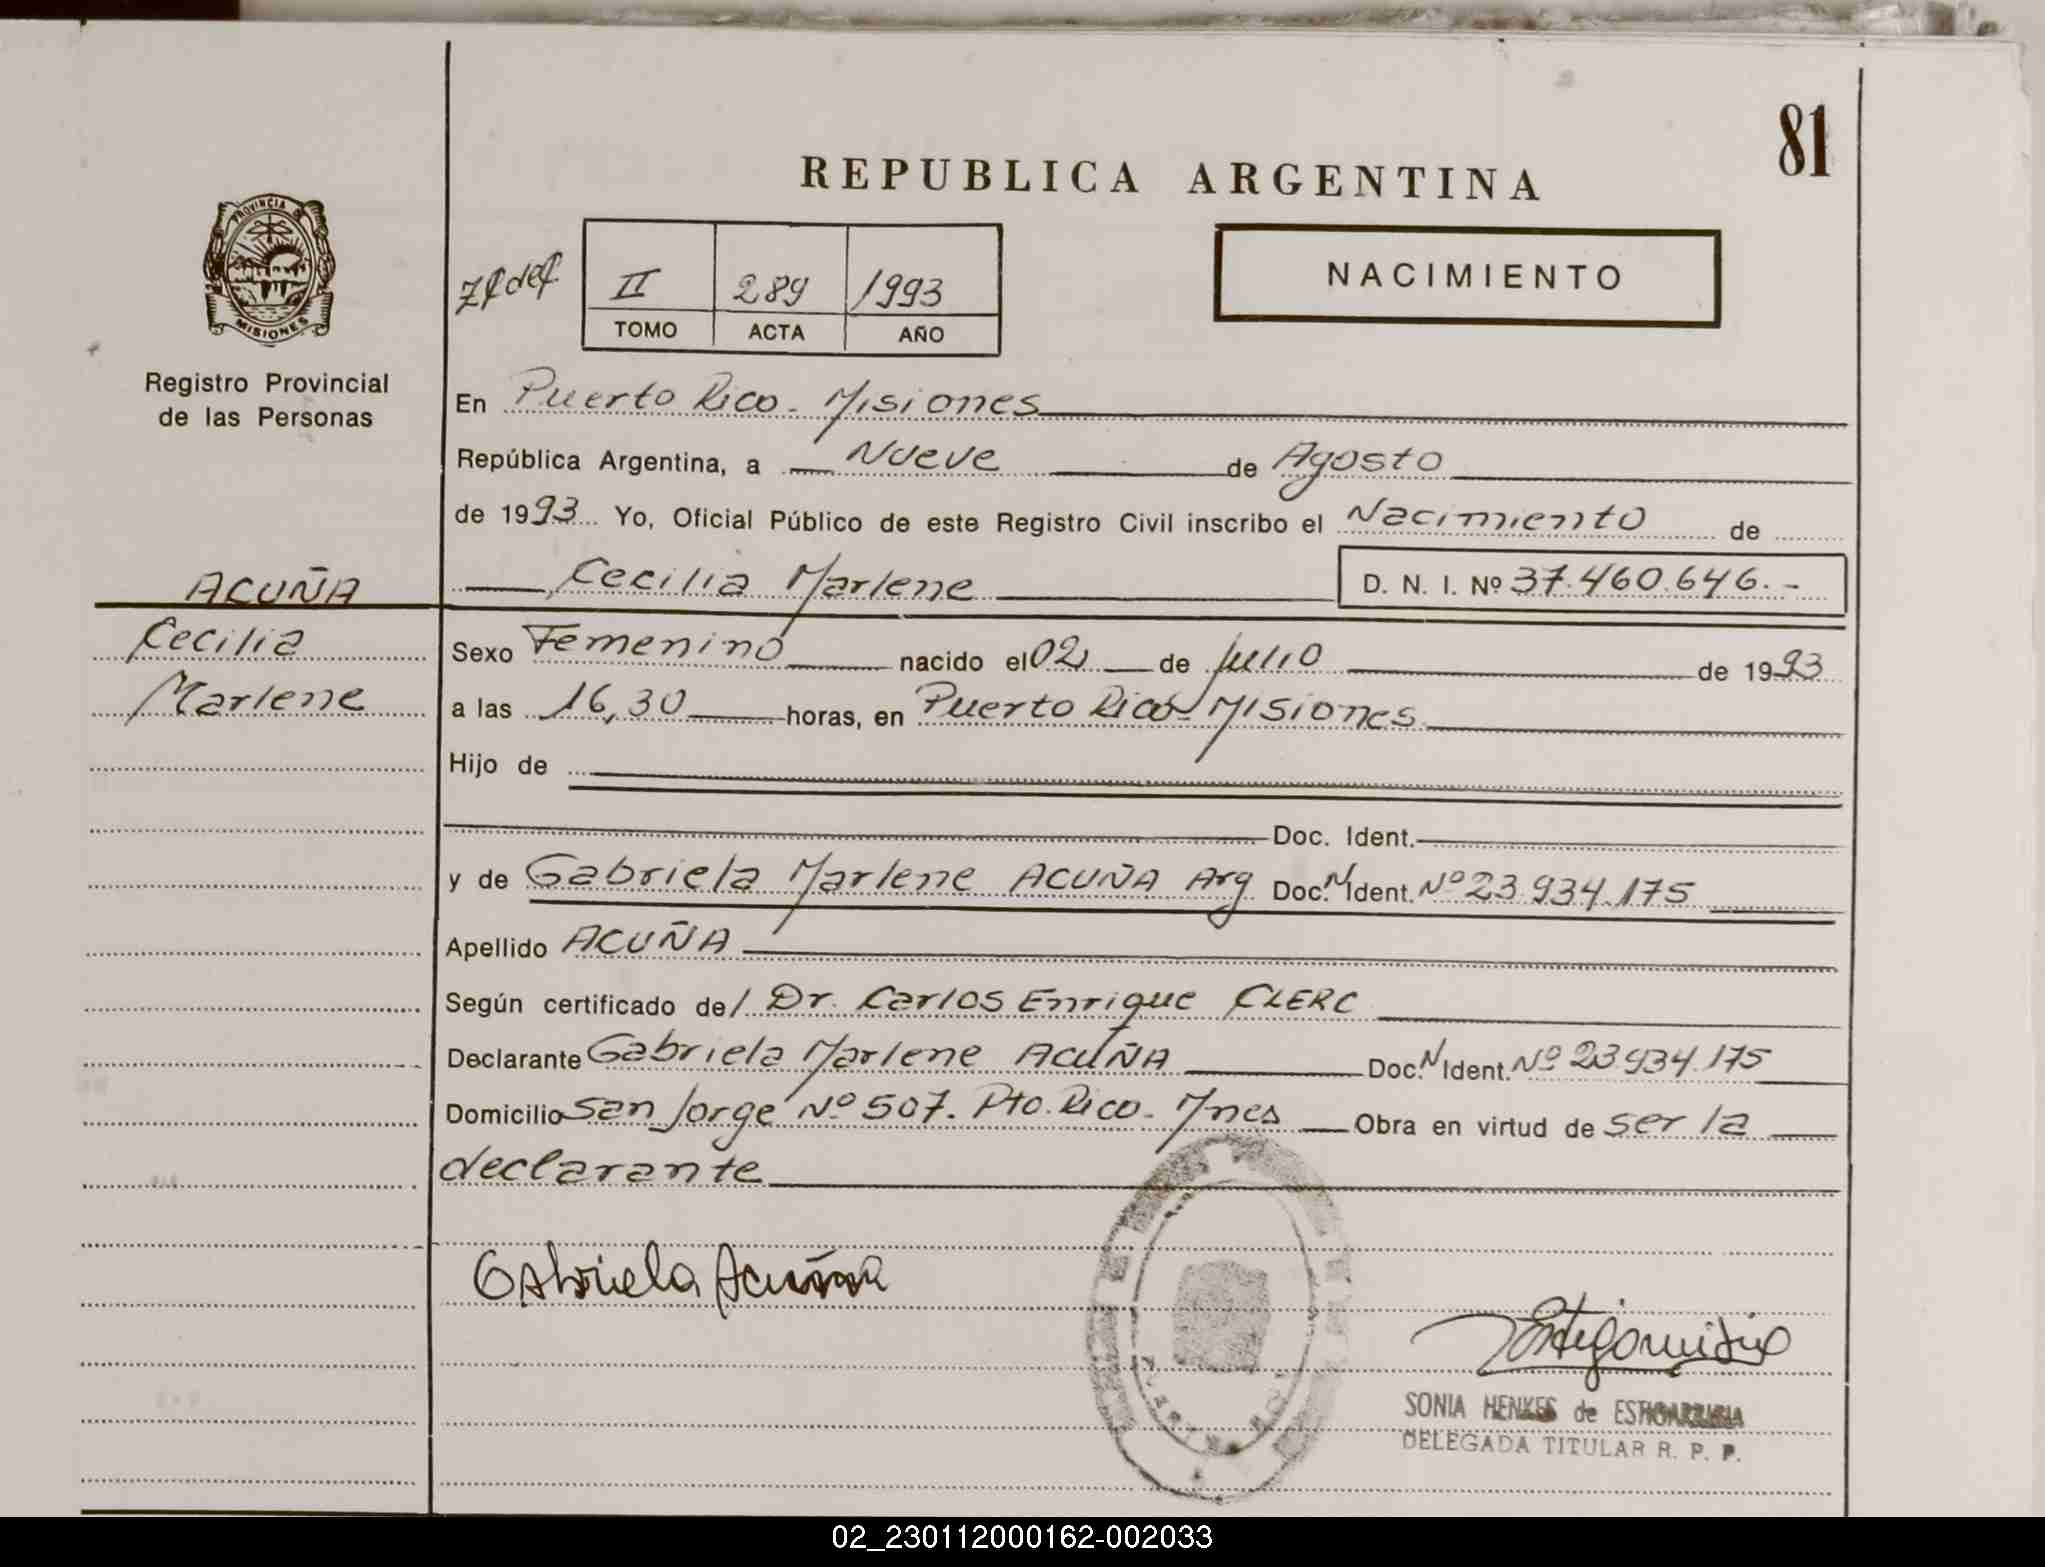 81
REPUBLICA ARGENTINA
PROVINCIA DE
MISIONES
Registro Provincial
de las Personas
II 289 1993
TOMO ACTA AÑO
NACIMIENTO
En Puerto Rico - Misiones
República Argentina, a Nueve de Agosto
de 1993 Yo, Oficial Público de este Registro Civil inscribo el Nacimiento de
Cecilia Marlene D. N. I. Nº 37.460.646.-
ACUÑA
Cecilia
Marlene
Sexo Femenino nacido el 02 de Julio de 1993
a las 16,30 horas, en Puerto Rico - Misiones
Hijo de
Doc. Ident.
y de Gabriela Marlene ACUÑA Arg Doc. N. Ident. Nº 23.934.175
Apellido ACUÑA
Según certificado del Dr. Carlos Enrique CLERC
Declarante Gabriela Marlene ACUÑA Doc. N. Ident. Nº 23.934.175
Domicilio San Jorge Nº 507. Pto. Rico - Mnes Obra en virtud de ser la
declarante
Gabriela Acuña
SONIA HENKES de ESTIGARRIBIA
DELEGADA TITULAR R. P. P.
PUERTO RICO
02_230112000162-002033